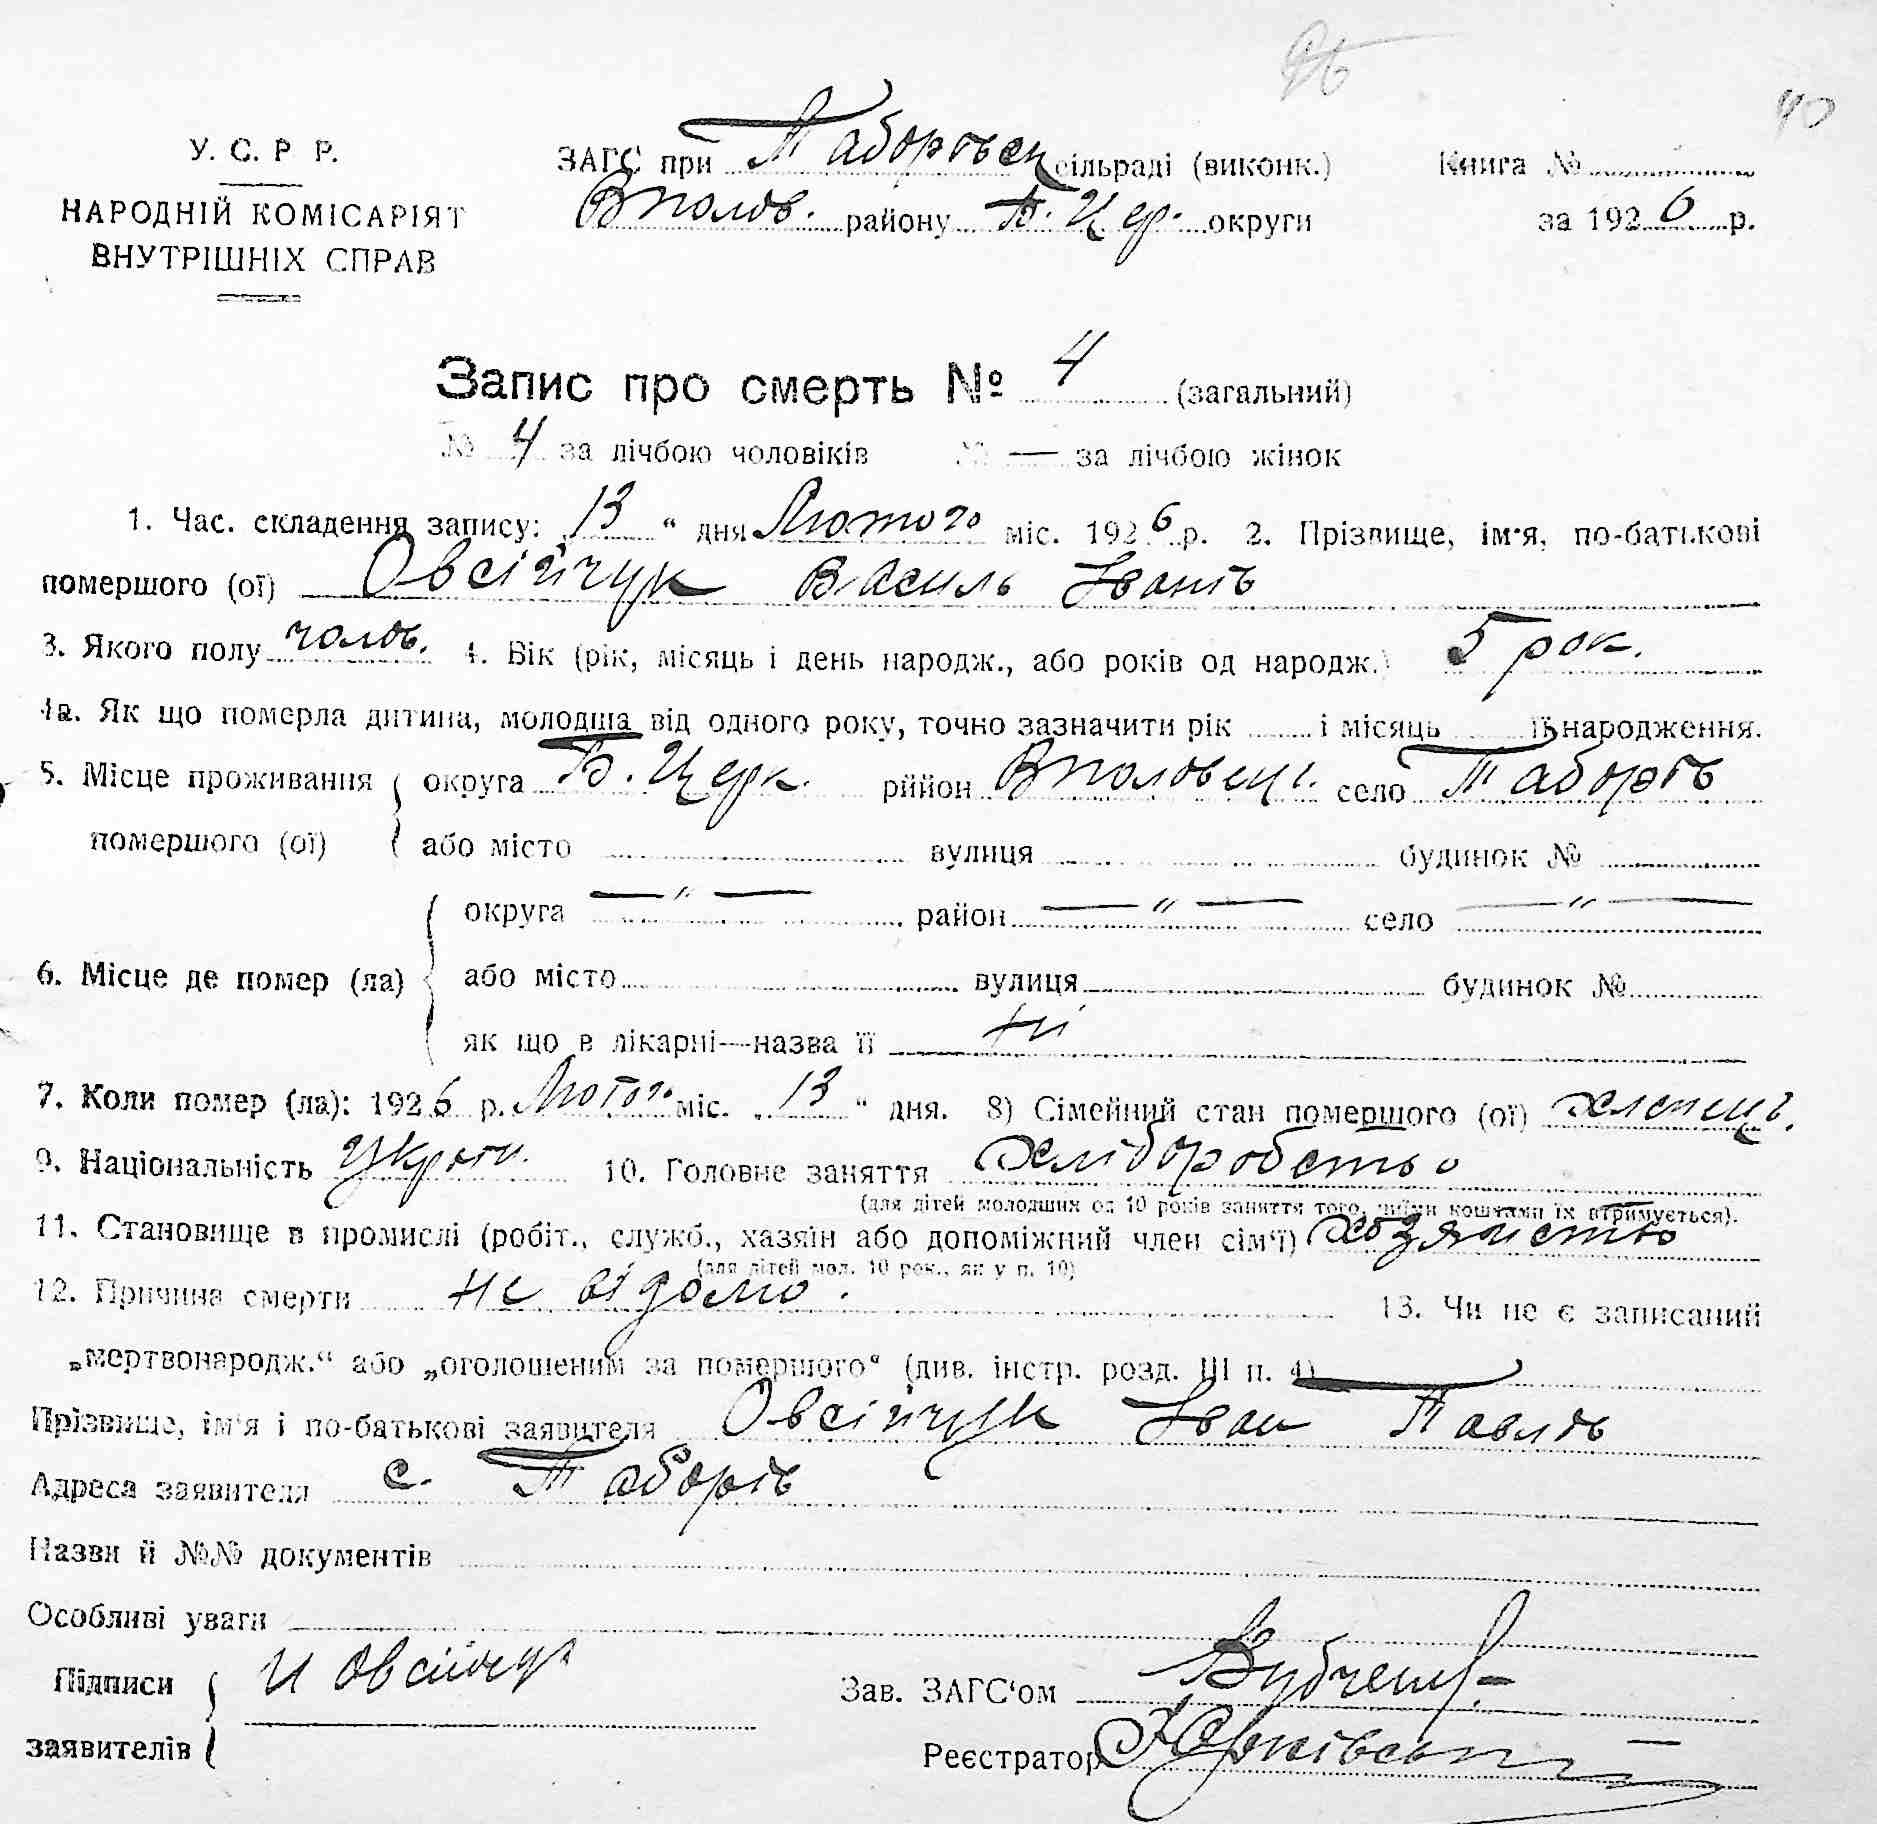 96
40
У. С. Р Р.
НАРОДНІЙ КОМІСАРІЯТ
ВНУТРІШНІХ СПРАВ
ЗАГС при Таборівськ сільраді (виконк.)
Вполов. району Б. Цер. округи
Книга №
за 1926 р.
Запис про смерть № 4 (загальний)
№ 4 за лічбою чоловіків № — за лічбою жінок
1. Час. складення запису: 13 " дня Лютого міс. 1926 р. 2. Прізвище, ім'я, по-батькові
помершого (ої) Овсійчук Василь Іванів
3. Якого полу чолов. 4. Вік (рік, місяць і день народж., або років од народж.) 5 рок.
4а. Як що померла дитина, молодша від одного року, точно зазначити рік і місяць її народження.
5. Місце проживання округа Б. Церк. рййон Вполовец. село Таборів
помершого (ої) або місто вулиця будинок №
округа —"— район —"— село —"—
6. Місце де помер (ла) або місто вулиця будинок №
як що в лікарні—назва її ні
7. Коли помер (ла): 1926 р. Лютого міс. „13 " дня. 8) Сімейний стан помершого (ої) хлопець.
9. Національність Україн. 10. Головне заняття хліборобство
(для дітей молодших од 10 років заняття того, чиїми коштами їх втримується).
11. Становище в промислі (робіт., служб., хазяїн або допоміжний член сім'ї) хозяйство
(для дітей мол. 10 рок., як у п. 10)
12. Причина смерти не відомо. 13. Чи не є записаний
„мертвонародж." або „оголошеним за помершого" (див. інстр. розд. III п. 4)
Прізвище, ім'я і по-батькові заявителя Овсійчук Іван Павлів
Адреса заявителя с. Таборів
Назви й №№ документів
Особливі уваги
Підписи И Овсійчук
заявителів
Зав. ЗАГС'ом
Реєстратор